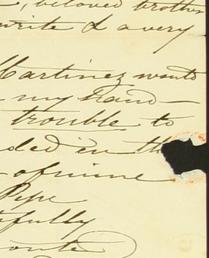 , beloved brother
write & a very
Martinez wants
my hand-
trouble to
ded in the
of mine
Pipe
tfully